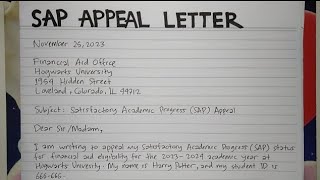 SAP APPEAL LETTER
November 25, 2023
Financial Aid Office
Hogwarts University
1954 Hidden Street
Loveland, Colorado, IL 44712
Subject: Satisfactory Academic Progress (SAP) Appeal
Dear Sir/Madam,
I am writing to appeal my Satisfactory Academic Progress (SAP) status
for financial aid eligibility for the 2023-2024 academic year at
Hogwarts University. My name is Harry Potter, and my student ID is
666-666.